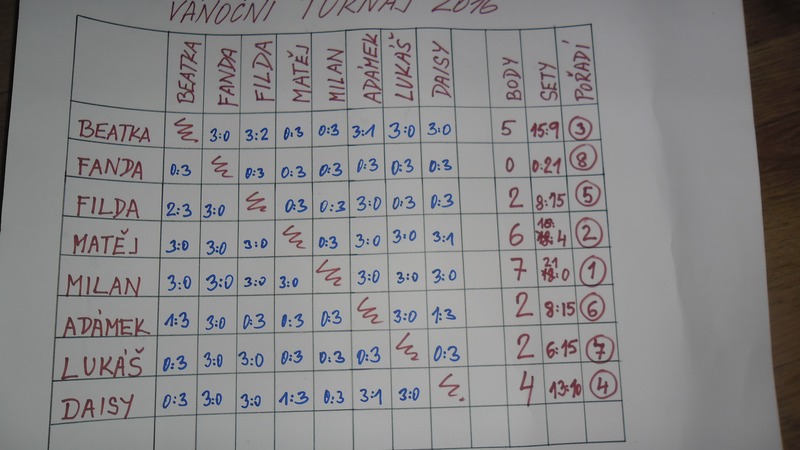 VÁNOČNÍ TURNAJ 2016
BEATKA FANDA FILDA MATĚJ MILAN ADÁMEK LUKÁŠ DAISY BODY SETY POŘADÍ
BEATKA 3:0 3:2 0:3 0:3 3:1 3:0 3:0 5 15:9 3
FANDA 0:3 0:3 0:3 0:3 0:3 0:3 0:3 0 0:21 8
FILDA 2:3 3:0 0:3 0:3 3:0 0:3 0:3 2 8:15 5
MATĚJ 3:0 3:0 3:0 0:3 3:0 3:0 3:1 6 :4 2
MILAN 3:0 3:0 3:0 3:0 3:0 3:0 3:0 7 21:0 1
ADÁMEK 1:3 3:0 0:3 0:3 0:3 3:0 1:3 2 8:15 6
LUKÁŠ 0:3 3:0 3:0 0:3 0:3 0:3 0:3 2 6:15 7
DAISY 0:3 3:0 3:0 1:3 0:3 3:1 3:0 4 13:10 4